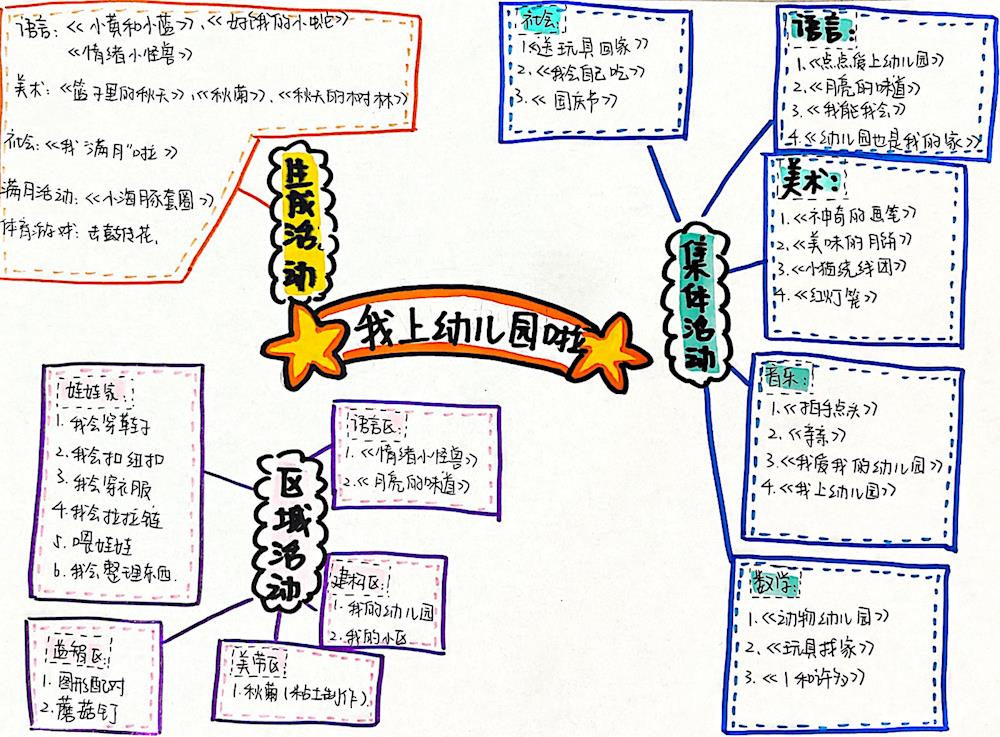 语言：《小黄和小蓝》、《好饿的小蛇》
《情绪小怪兽》
美术：《篮子里的秋天》、《秋菊》、《秋天的树林》
社会：《我"满月"啦》
满月活动：《小海豚套圈》
体育游戏：击鼓传花.
生成活动
社会:
1《送玩具回家》
2.《我会自己吃》
3.《国庆节》
语言:
1.《点点爱上幼儿园》
2.《月亮的味道》
3.《我能我会》
4.《幼儿园也是我的家》
美术:
1.《神奇的画笔》
2.《美味的月饼》
3.《小猫绕线团》
4.《红灯笼》
集体活动
我上幼儿园啦
音乐:
1.《拍手点头》
2.《亲亲》
3.《我爱我的幼儿园》
4.《我上幼儿园》
数学:
1.《动物幼儿园》
2.《玩具找家》
3.《1和许多》
娃娃家:
1.我会穿鞋子
2.我会扣纽扣
3.我会穿衣服
4.我会拉拉链
5.喂娃娃
6.我会整理东西.
语言区:
1.《情绪小怪兽》
2.《月亮的味道》
区域活动
建构区:
1.我的幼儿园
2.我的小区
益智区:
1.图形配对
2.蘑菇钉
美劳区:
1.秋菊(粘土制作).